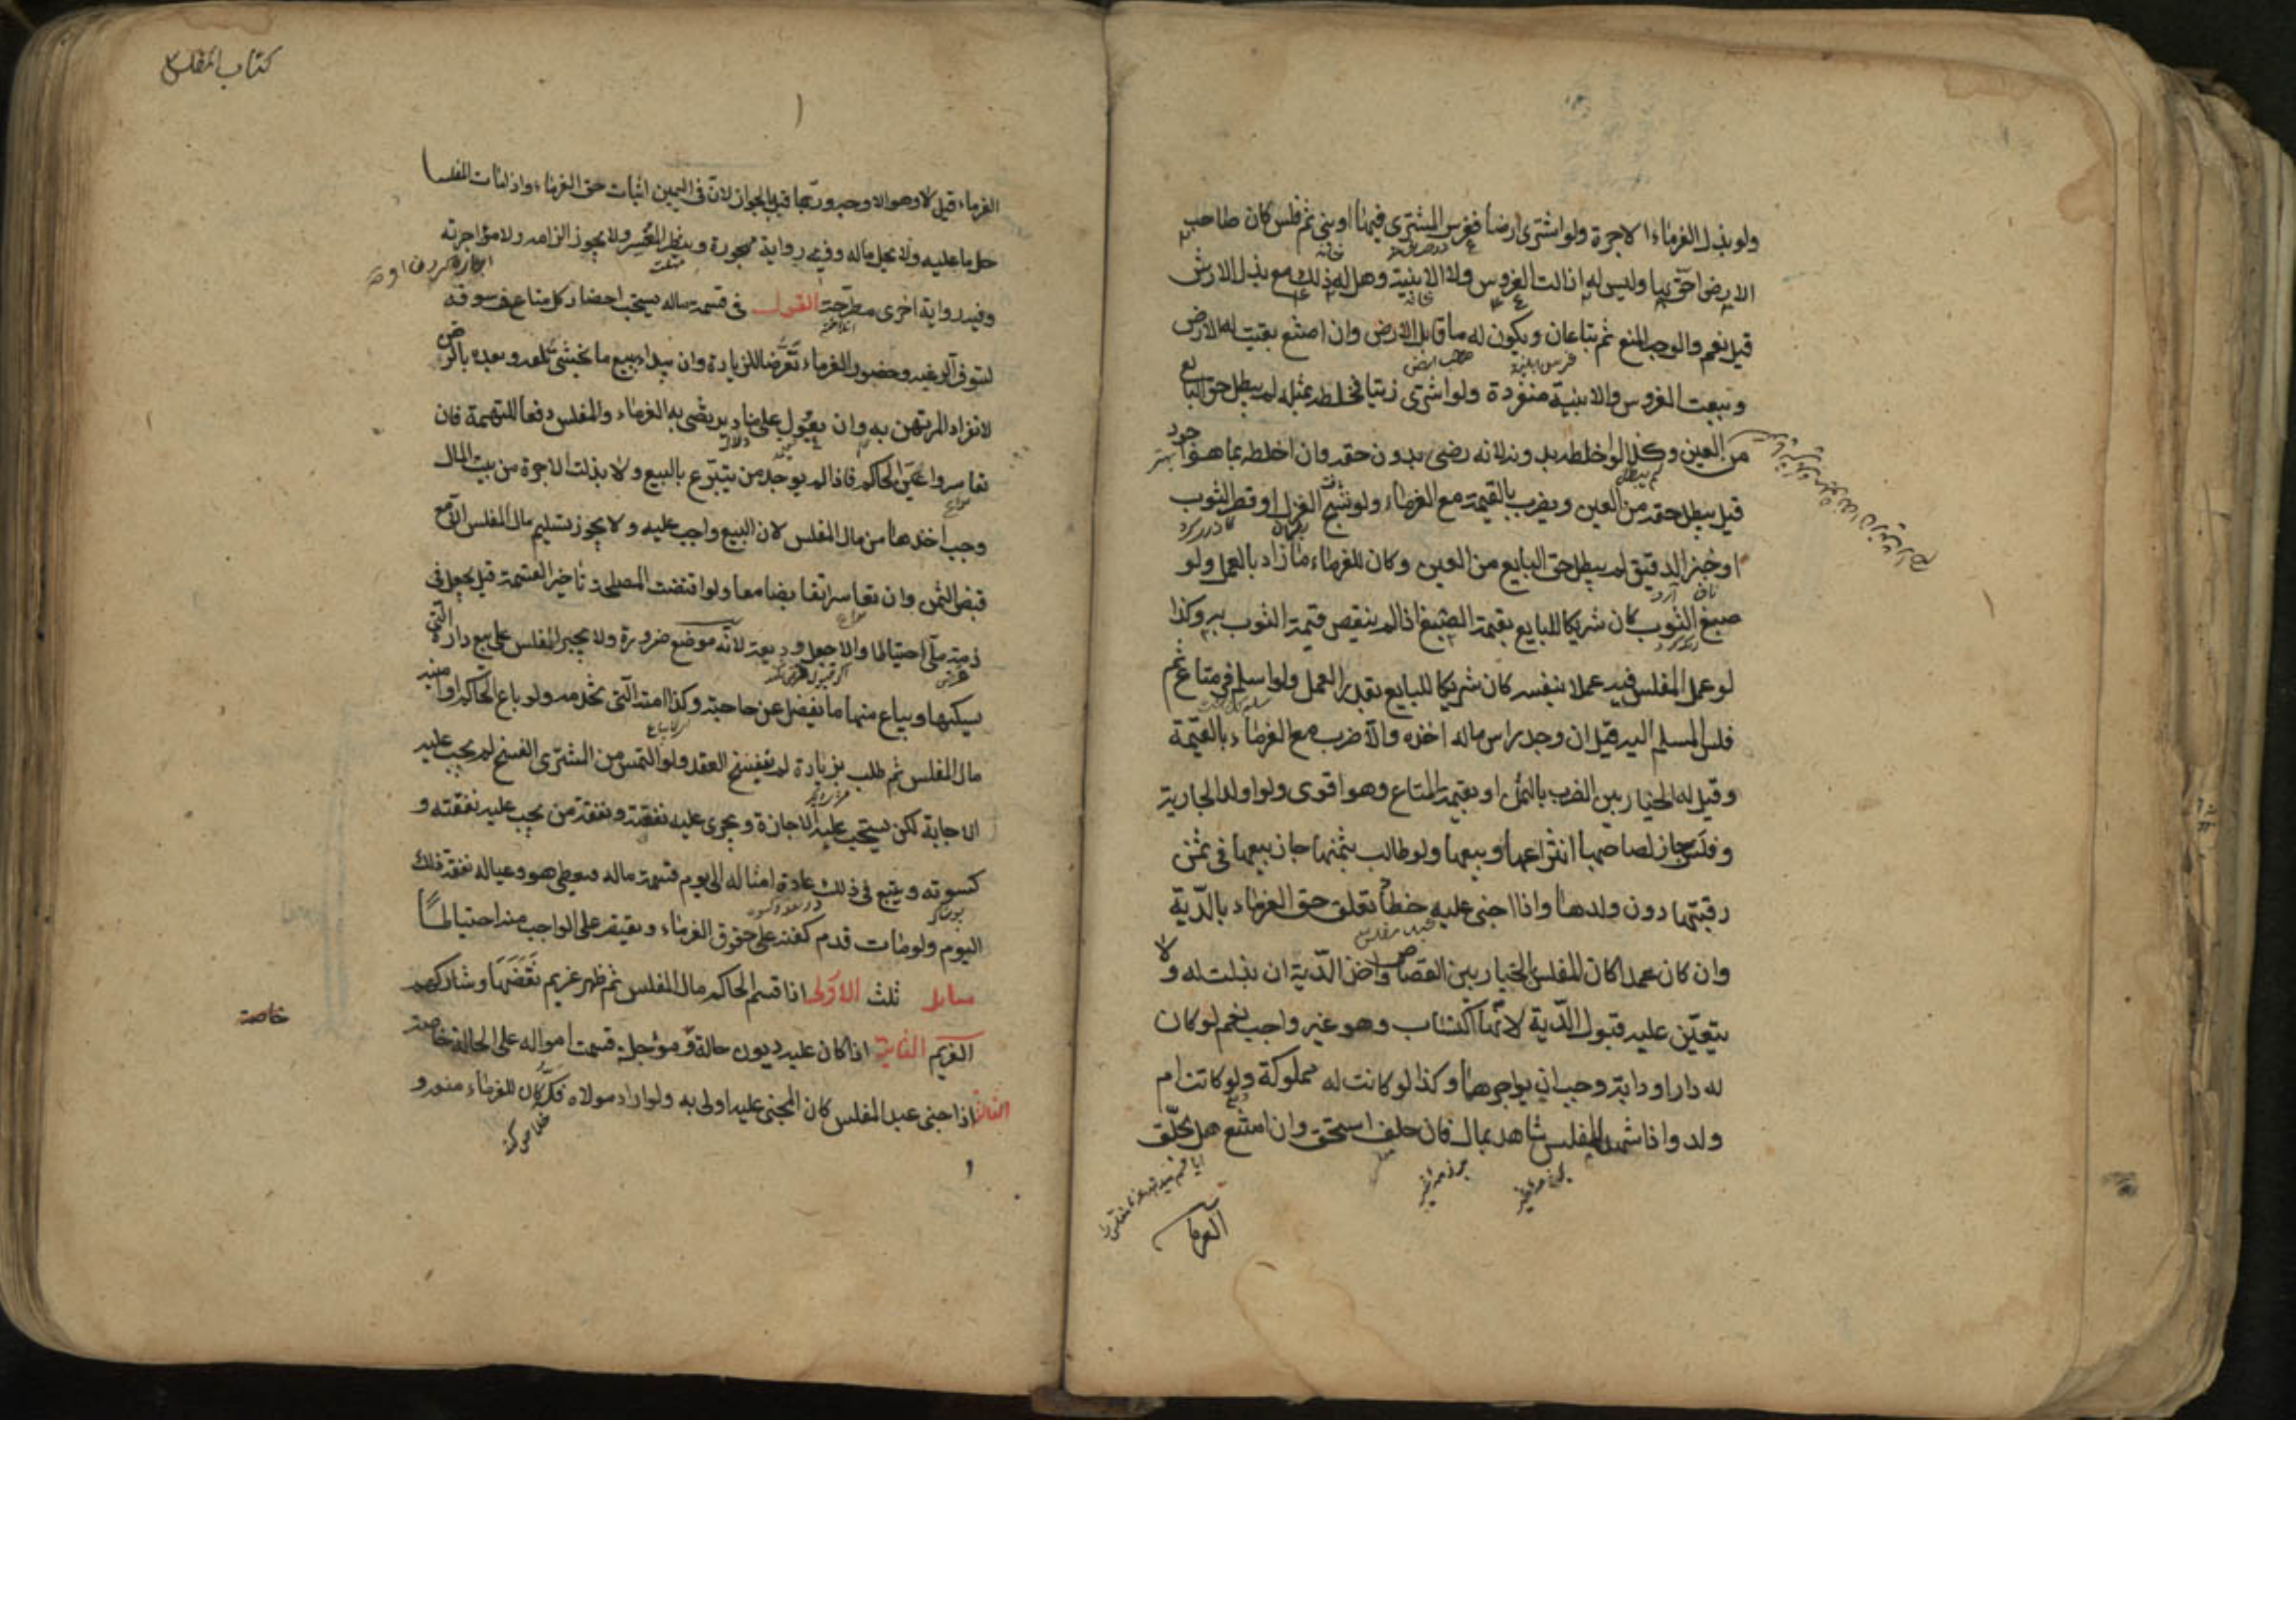 ولو بذل الغرماء الاجرة ولو اشترى ارضا فغرس المشترى فيها او بنى ثم فلس كان صاحب
الارض احق بها وليس له ازالت الغروس ولا الابنية وهل له ذلك مع بذل الارش
قيل نعم والوجه المنع ثم تباعان ويكون له ما قابل الارض وان امتنع بقيت له الارض
وبيعت الغروس والابنية منفردة ولو اشترى زيتا فخلطه بمثله لم يبطل حق البايع
من العين وكذا لو خلطه بدونه لانه رضى بدون حقه وان اخلطه بما هو اجود
قيل يبطل حقه من العين ويضرب بالقيمة مع الغرماء ولو نسج الغزل او قصر الثوب
او خبز الدقيق لم يبطل حق البايع من العين وكان للغرماء ما زاد بالعمل ولو
صبغ الثوب كان شريكا للبايع بقيمة الصبغ اذا لم ينقص قيمة الثوب به وكذا
لو عمل المفلس فيه عملا بنفسه كان شريكا للبايع بقدر العمل ولو اسلم فى متاع ثم
فلس المسلم اليه قيل ان وجد راس ماله اخذه والا ضرب مع الغرماء بالقيمة
وقيل له الخيار بين الضرب بالثمن او بقيمة المتاع وهو اقوى ولو اولد الجارية
وفلس جاز لصاحبها انتزاعها وبيعها ولو طالب بثمنها جاز بيعها فى ثمن
رقبتها دون ولدها واذا جنى عليه خطأ تعلق حق الغرماء بالدية
وان كان عمدا كان المفلس الخيار بين القصاص واخذ الدية ان بذلت له ولا
يتعين عليه قبول الدية لانها اكتساب وهو غير واجب نعم لو كان
له دار او دابة وجب ان يواجرها وكذا لو كانت له مملوكة ولو كانت ام
ولد واذا شهد للمفلس شاهد بمال فان حلف استحق وان امتنع هل يحلف
الغرماء
كتاب المفلس
الغرماء قيل لا وهو الاوجه وربما قيل بالجواز لان فى اليمين اثبات حق الغرماء واذا مات المفلس
حل ما عليه ولا يحل ماله وفيه رواية مهجورة وينظر المعسر ولا يجوز الزامه ولا مؤاجرته
وفيه رواية اخرى مطرحة القول فى قسمة ماله يستحب احضار كل متاع فى سوقه
ليتوفر الرغبة وحضور الغرماء تعرضا للزيادة وان يبدا ببيع ما يخشى تلفه وبعده بالرهن
لانفراد المرتهن به وان يعول على مناد يرتضى به الغرماء والمفلس دفعا للتهمة فان
تعاسروا عين الحاكم فاذا لم يوجد من يتبرع بالبيع ولا بذلت الاجرة من بيت المال
وجب اخذها من مال المفلس لان البيع واجب عليه ولا يجوز تسليم مال المفلس الا مع
قبض الثمن وان تعاسرا تقابضا معا ولو اقتضت المصلحة تاخير القسمة قيل يجعل فى
ذمة ملى احتياطا والا جعل وديعة لانه موضع ضرورة ولا يجبر المفلس على بيع داره التى
يسكنها ويباع منها ما يفضل عن حاجته وكذا امته التى تخدمه ولو باع الحاكم او امينه
مال المفلس ثم طلب بزيادة لم يفسخ العقد ولو التمس من المشترى الفسخ لم يجب عليه
الاجابة لكن يستحب عليه الاجازة ويجرى عليه نفقته ونفقة من يجب عليه نفقته و
كسوته ويتبع فى ذلك عادة امثاله الى يوم قسمة ماله فيعطى هو وعياله نفقة ذلك
اليوم ولو مات قدم كفنه على حقوق الغرماء ويقتصر على الواجب منه احتياطا
مسايل ثلث الاولى اذا قسم الحاكم مال المفلس ثم ظهر غريم نقضها وشاركهم
الغريم الثانية اذا كان عليه ديون حالة ومؤجلة قسمت امواله على الحالة خاصة
خاصة
الثالثة اذا جنى عبد المفلس كان المجنى عليه اولى به ولو اراد مولاه فكه كان للغرماء منعه و